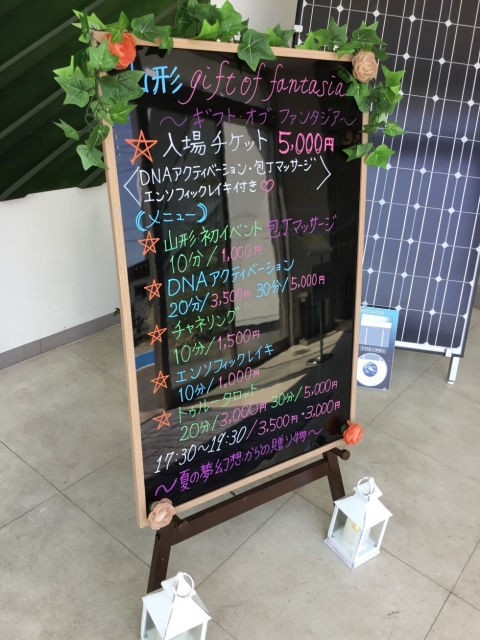 山形 gift of fantasia
～ギフト・オブ・ファンタジア～
☆入場チケット 5,000円
〈DNAアクティベーション・包丁マッサージ
エンソフィックレイキ付き♡〉
《メニュー》
☆山形初イベント包丁マッサージ
10分/1,000円
☆DNAアクティベーション
20分/3,500円 30分/5,000円
☆チャネリング
10分/1,500円
☆エンソフィックレイキ
10分/1,000円
☆トゥルータロット
20分/3,000円 30分/5,000円
17:30～19:30/3,500円・3,000円
～夏の夢幻想からの贈り物～